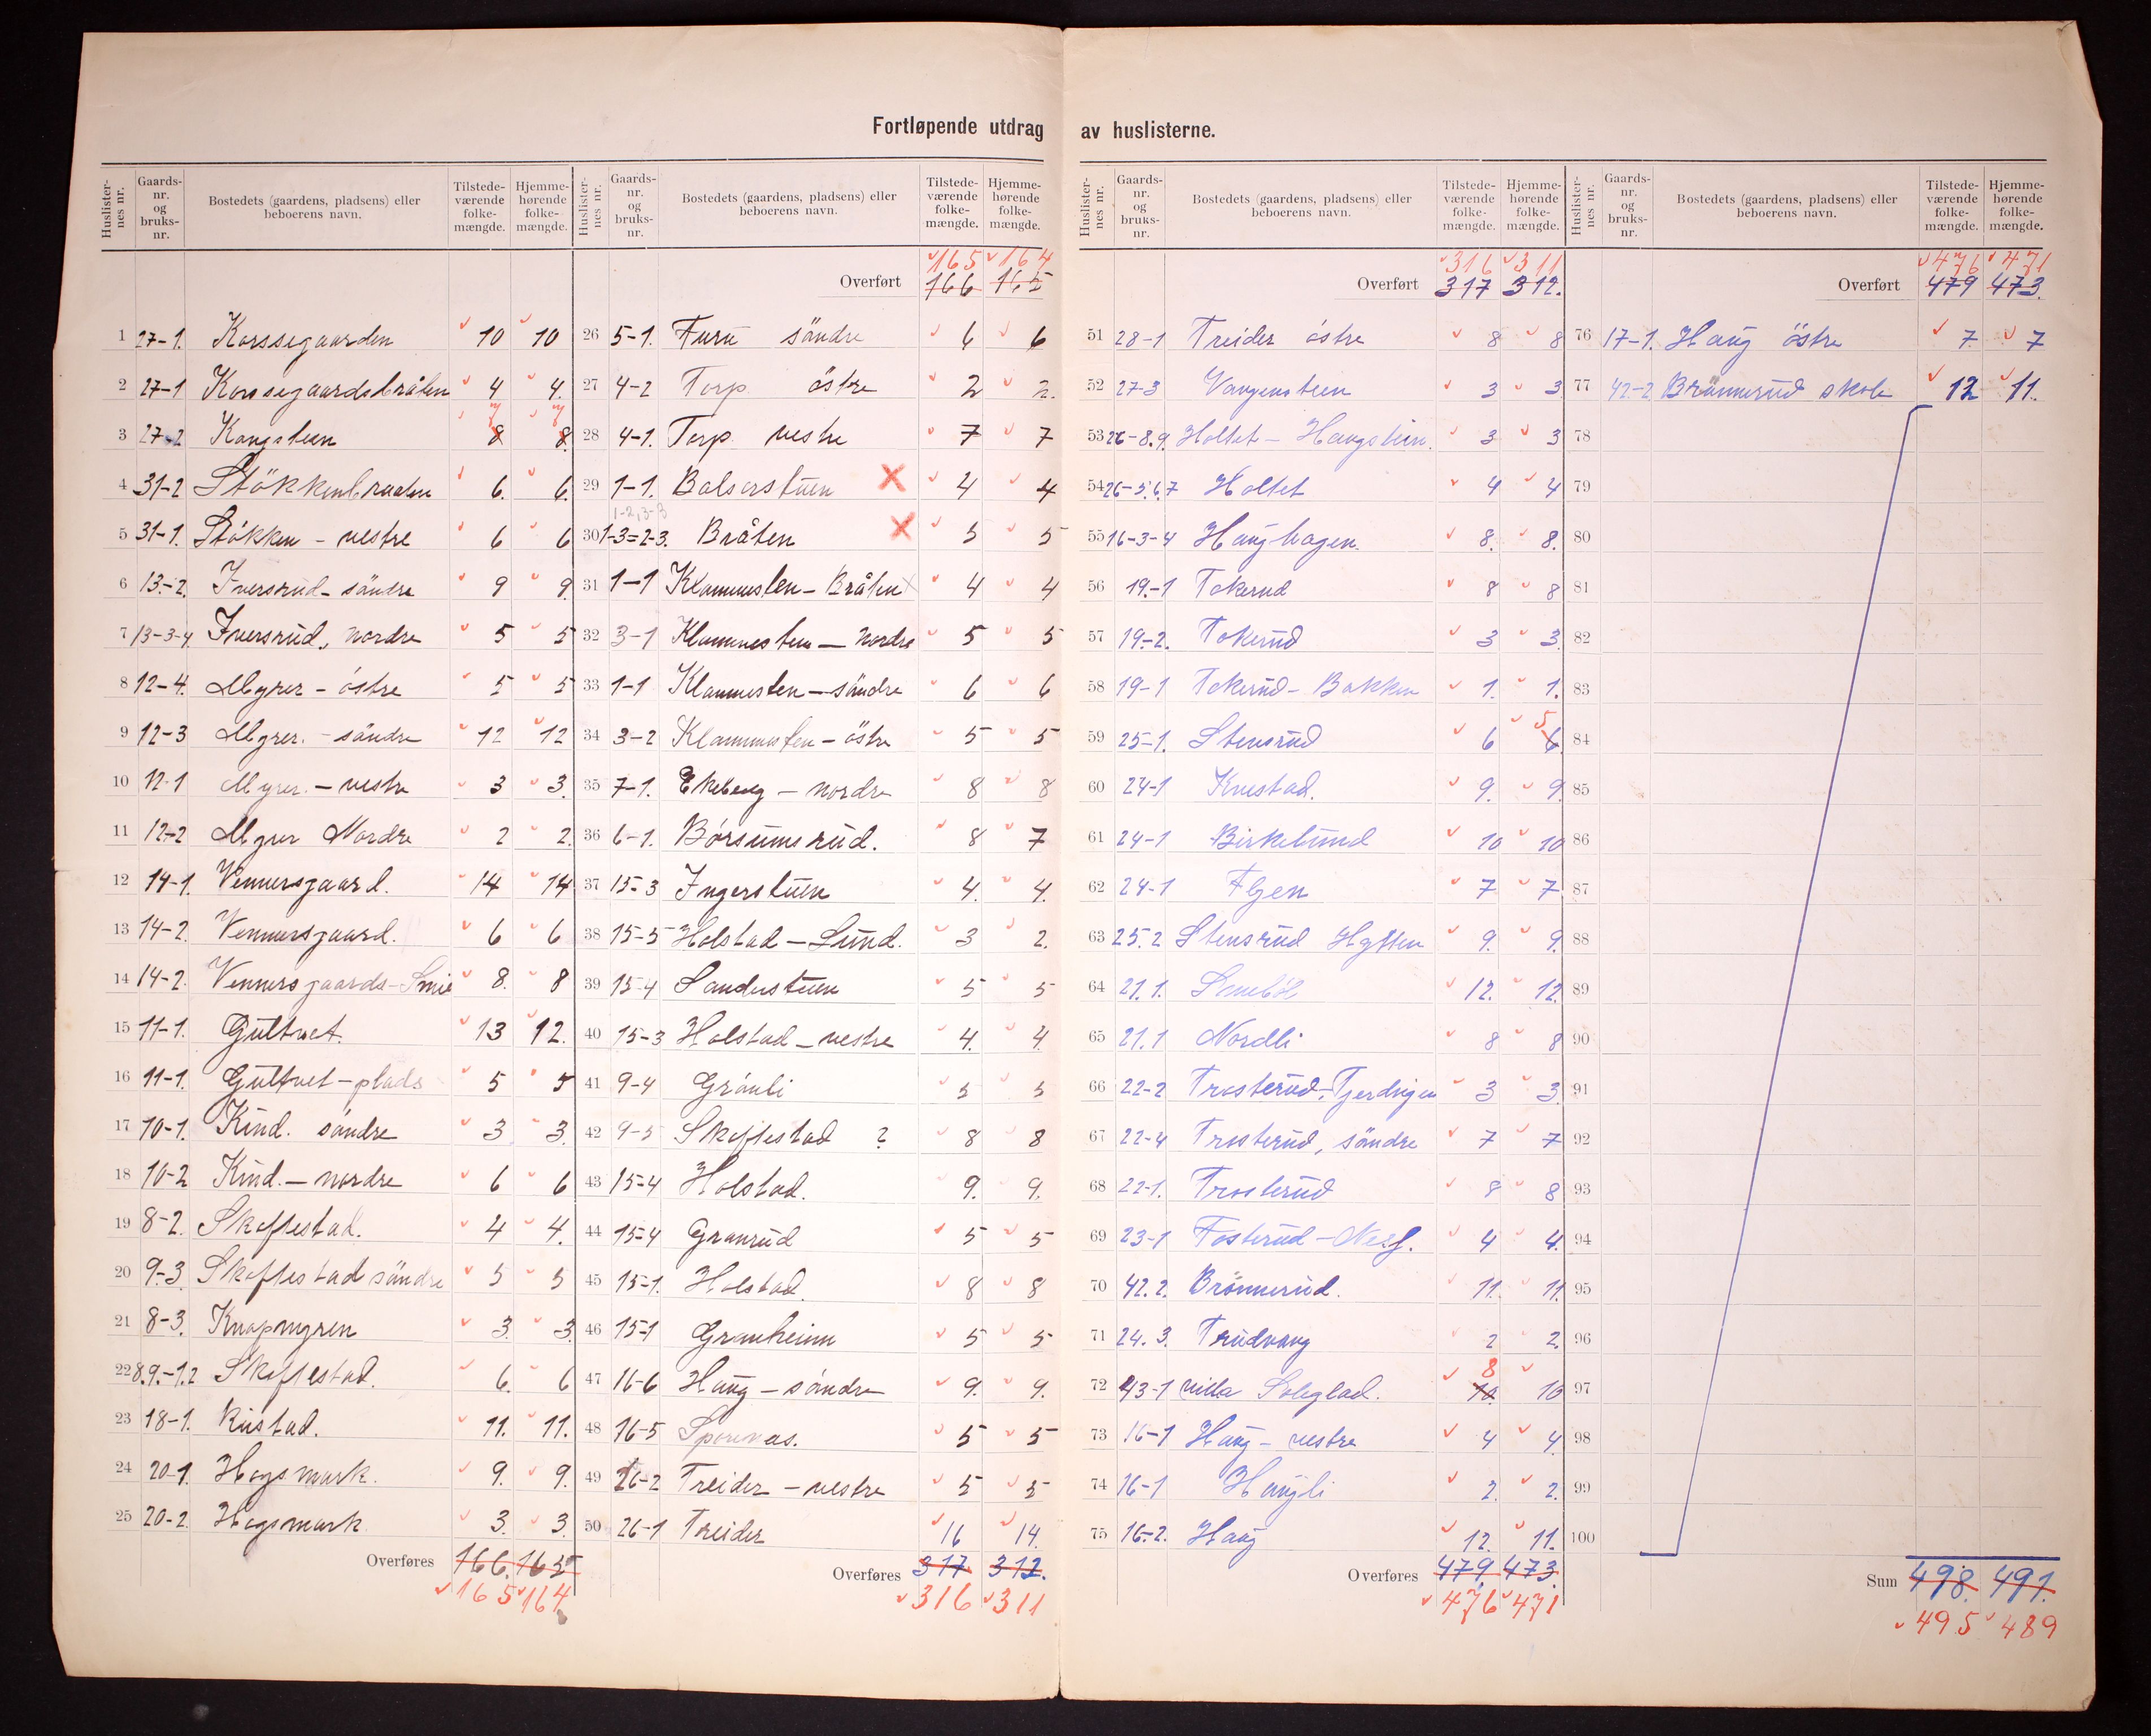 Fortløpende utdrag av huslisterne.
Huslister-nes nr. Gaards-nr. og bruks-nr. Bostedets (gaardens, pladsens) eller beboerens navn. Tilstede-værende folke-mængde. Hjemme-hørende folke-mængde.
1 27-1. Korssegaarden 10 10
2 27-1 Korssegaardsbråten 4 4.
3 27-2 Kongsteen 8 7 8. 7
4 31-2 Stökkenbraaten 6. 6.
5 31-1. Stökken - vestre 6 6
6 13.-2. Iversrud - söndre 9 9.
7 13-3-4. Iversrud, nordre 5 5
8 12-4. Myrer - östre 5 5
9 12-3 Myrer. - söndre 12 12
10 12-1 Myrer. - vestre 3 3.
11 12-2 Myrer Nordre 2 2.
12 14-1. Vennersgaard. 14 14
13 14-2. Vennersgaard. 6 6
14 14-2. Vennersgaards-Smie 8. 8
15 11-1. Gultvet. 13 12.
16 11-1. Gultvet - plads 5 5
17 10-1. Kind. söndre 3 3.
18 10-2 Kind. - nordre 6 6
19 8-2. Skoftestad. 4 4.
20 9-3. Skoftestad söndre 5 5
21 8-3. Knapmyren 3. 3.
22 8.9.-1.2 Skoftestad. 6. 6
23 18-1. Kustad. 11. 11.
24 20-1. Hogsmark. 9. 9.
25 20-2. Hogsmark 3. 3.
Overføres 166. 165
165 164
Huslister-nes nr. Gaards-nr. og bruks-nr. Bostedets (gaardens, pladsens) eller beboerens navn. Tilstede-værende folke-mængde. Hjemme-hørende folke-mængde.
165 164
Overført 166 165
26 5-1. Furu söndre 6 6
27 4-2 Torp östre 2 2.
28 4-1. Torp vestre 7 7
29 1-1. Balserstuen X 4 4
1-2, 3-3
30 1-3=2-3. Bråten X 5 5
31 1-1 Klommesten - Bråten X 4 4
32 3-1 Klommesten - Nordre 5 5
33 1-1 Klommesten - söndre 6 6
34 3-2 Klommesten - östre 5 5
35 7-1. Ekeberg - nordre 8 8
36 6-1. Börsumsrud. 8 7
37 15-3 Ingerstuen 4. 4.
38 15-5 Holstad - Lund. 3 2.
39 15-4 Sanderstuen 5 5
40 15-3 Holstad - vestre 4. 4.
41 9-4 Grönli 5 5
42 9-5 Skoftestad ? 8 8
43 15-4 Holstad. 9. 9.
44 15-4 Granrud 5 5
45 15-1. Holstad. 8 8
46 15-1 Granheim 5 5
47 16-6 Haug - söndre 9. 9.
48 16-5 5 5
49 26-2 Treider - vestre 5 5
50 26-1 Treider 16 14.
Overføres 317 312.
316 311
Huslister-nes nr. Gaards-nr. og bruks-nr. Bostedets (gaardens, pladsens) eller beboerens navn. Tilstede-værende folke-mængde. Hjemme-hørende folke-mængde.
316 311
Overført 317 312.
51 28-1 Treider östre 8 8
52 27-3 Vangensteen 3 3
53 26-8.9. Holtet - Haugstein. 3 3
54 26-5.6.7 Holtet 4 4
55 16-3-4 Haughagen. 8. 8.
56 19.-1 Tokerud 8 8
57 19.-2. Tokerud 3 3.
58 19-1 Tokerud - Bakken 1. 1.
59 25-1. Stensrud 6 6 5
60 24-1 Krustad. 9. 9.
61 24-1 Birkelund 10 10
62 24-1 7 7.
63 25.2 Stensrud Hytten 9. 9.
64 21.1. 12. 12.
65 21.1 Nordli 8 8
66 22-2 Trosterud - 3 3.
67 22-4 Trosterud, söndre 7 7
68 22-1. Trosterud 8 8
69 23-1 Fosterud - 4 4.
70 42.2. Brönnerud. 11. 11.
71 24.3. Trudvang 2 2.
72 43-1 villa Soleglad. 10. 8 10
73 16-1 Haug - vestre 4 4.
74 16-1 Haugli 2. 2.
75 16-2. Haug 12. 11.
Overføres 479. 473.
476 471
Huslister-nes nr. Gaards-nr. og bruks-nr. Bostedets (gaardens, pladsens) eller beboerens navn. Tilstede-værende folke-mængde. Hjemme-hørende folke-mængde.
476 471
Overført 479 473.
76 17-1. Haug östre 7. 7
77 42-2 Brönnerud skole 12 11.
78
79
80
81
82
83
84
85
86
87
88
89
90
91
92
93
94
95
96
97
98
99
100
Sum 498. 491.
495 489